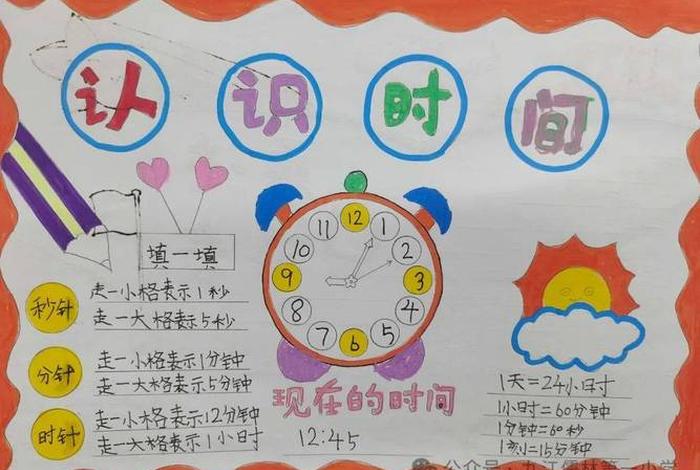 认识时间
填一填
秒针
走一小格表示1秒
走一大格表示5秒
分针
走一小格表示1分钟
走一大格表示5分钟
时针
走一小格表示12分钟
走一大格表示1小时
12
1
2
3
4
5
6
7
8
9
10
11
现在的时间
12:45
1天=24小时
1小时=60分钟
1分钟=60秒
1刻=15分钟
公众号